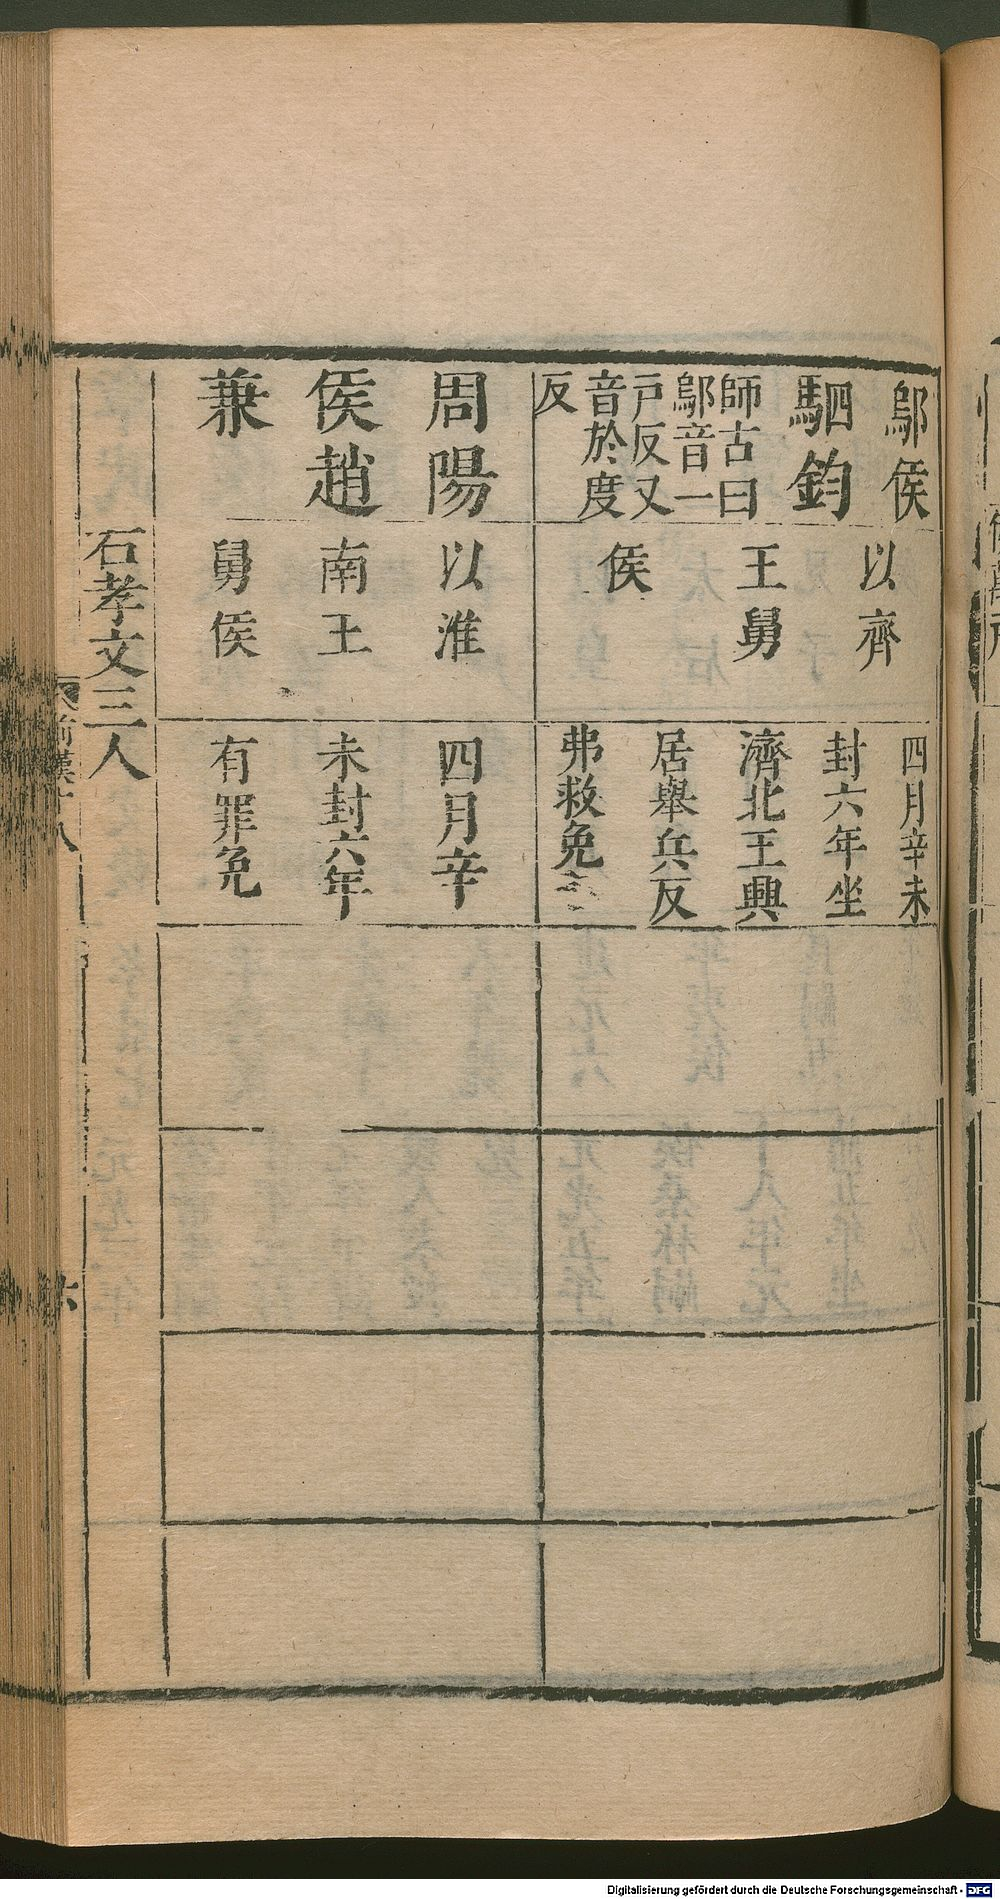 鄔侯
駟鈞
師古曰
鄔音一
戸反又
音於度
反
以齊
王舅
侯
四月辛未
封六年坐
濟北王興
居舉兵反
弗救免
周陽
侯趙
兼
以淮
南王
舅侯
四月辛
未封六年
有罪免
石孝文三人
前漢十八
六
Digitalisierung gefördert durch die Deutsche Forschungsgemeinschaft - DFG